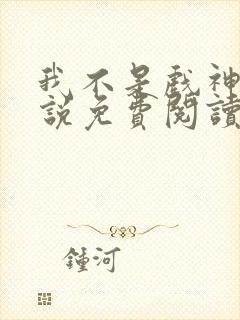 我不是戲神
說免費閱讀
鍾河